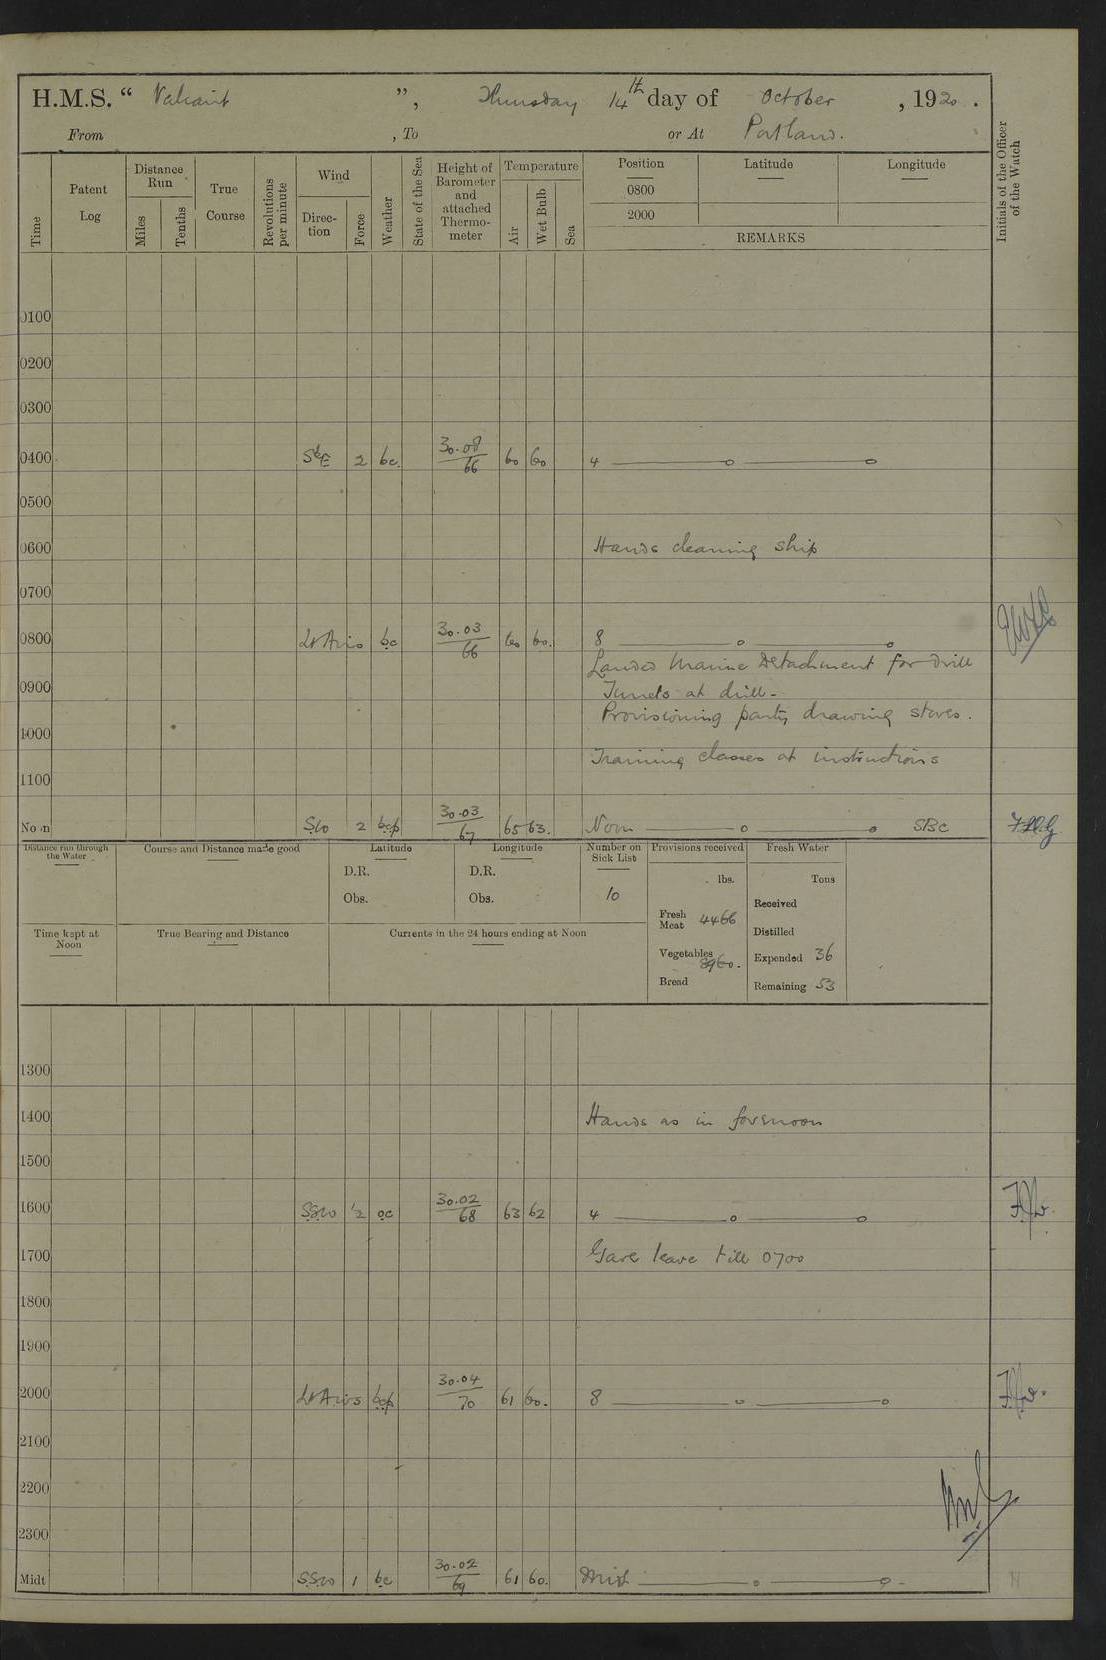 H.M.S. “ Valiant ”, Thursday 14th day of October , 1920 .
From , To or At Portland.
Time Patent Log Distance Run Miles Tenths True Course Revolutions per minute Wind Direc-tion Force Weather State of the Sea Height of Barometer and attached Thermo-meter Temperature Air Wet Bulb Sea Position Latitude Longitude Initials of the Officer of the Watch
0800
2000
REMARKS
0100
0200
0300
0400 SbE 2 bc. 30.08 / 66 60 60 4
0500
0600 Hands cleaning ship
0700
0800 Lt Airs bc 30.03 / 66 60 60. 8
Landed Marine Detachment for drill
0900 Turrets at drill-
Provisioning party drawing stores.
1000
Training classes at instructions
1100
Noon SW 2 bcp 30.03 / 67 65 63. Noon SBC
Distance run through the Water Course and Distance made good Latitude Longitude Number on Sick List Provisions received Fresh Water
D.R. D.R. lbs. Tons
Obs. Obs. 10 Received
Fresh Meat 4466
Time kept at Noon True Bearing and Distance Currents in the 24 hours ending at Noon Distilled
Vegetables 8960. Expended 36
Bread Remaining 53
1300
1400 Hands as in forenoon
1500
1600 SSW 1/2 oc 30.02 / 68 63 62 4
1700 Gave leave till 0700
1800
1900
2000 Lt Airs bcp 30.04 / 70 61 60. 8
2100
2200
2300
Midt SSW 1 bc 30.02 / 69 61 60. Mid